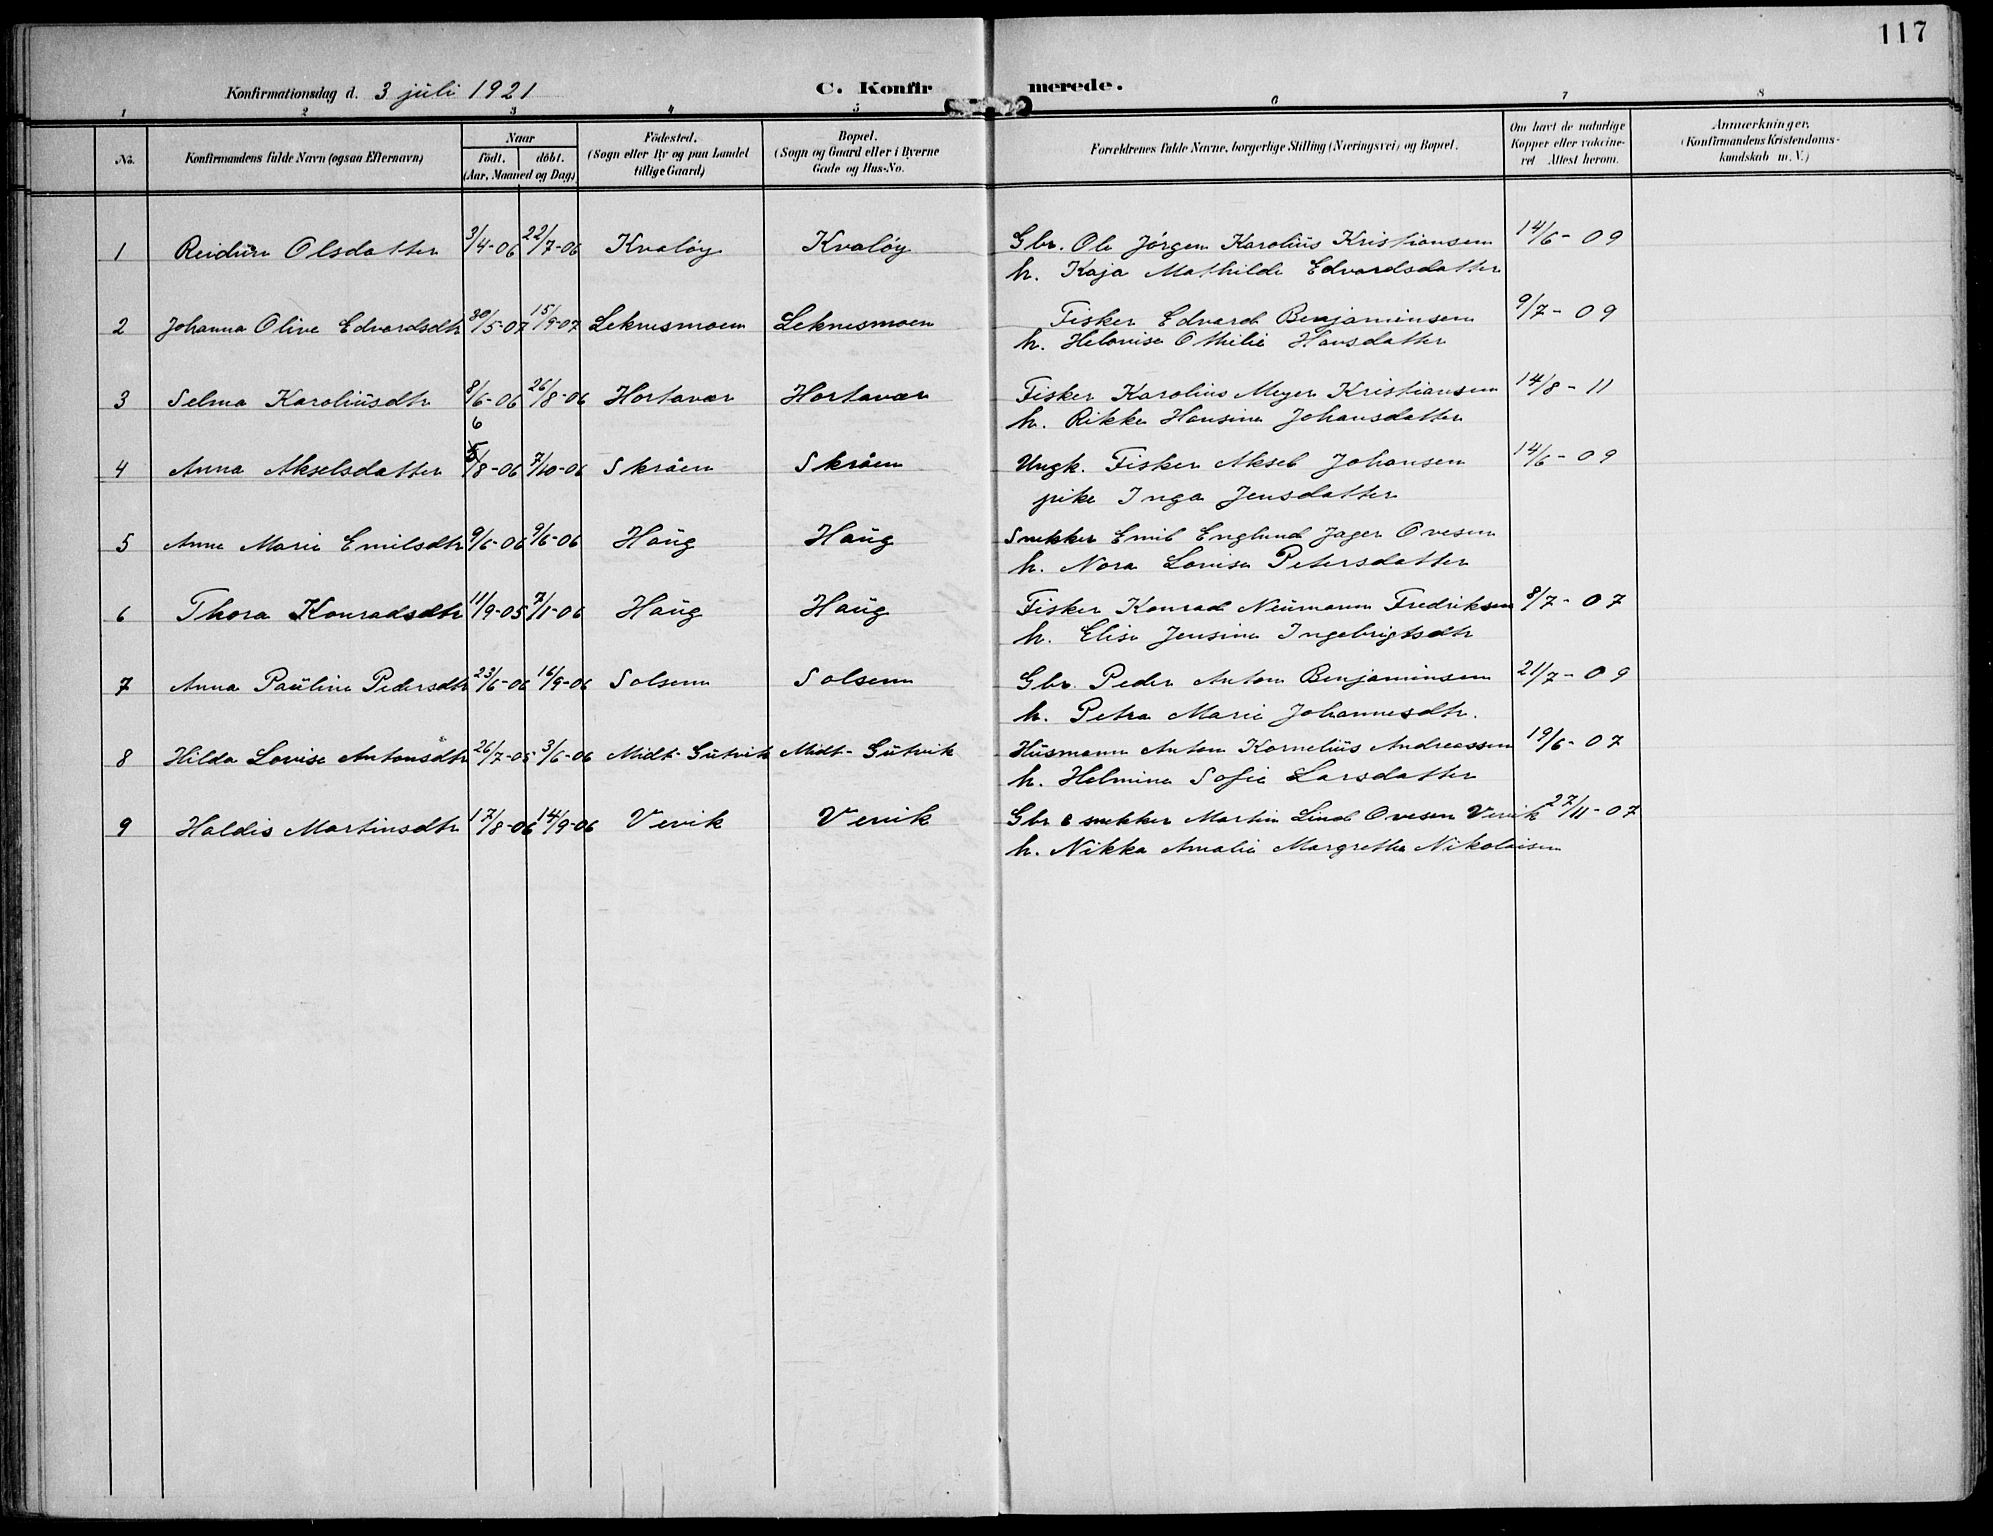 117
Konfirmationsdag d. 3 juli 1921 C. Konfirmerede.
1 2 3 4 5 6 7 8
No. Konfirmandens fulde Navn (ogsaa Efternavn) Naar født. døbt. (Aar, Maaned og Dag) Fødested. (Sogn eller By og paa Landet tillige Gaard) Bopæl. (Sogn og Gaard eller i Byerne Gade og Hus-No. Forældrenes fulde Navne, borgerlige Stilling (Næringsvei) og Bopæl. Om havt de naturlige Kopper eller vaccineret Attest herom. Anmærkninger. (Konfirmandens Kristendomskundskab m. V.)
1 Reidun Olsdatter 3/4-06 22/7-06 Kvaløy Kvaløy Gbr. Ole Jørgen Karolius Kristiansen 14/6-09
h. Kaja Mathilde Edvardsdatter
2 Johanna Olive Edvardsdtr 30/5-07 15/9-07 Leknesmoen Leknesmoen Fisker Edvard Benjaminsen 9/7-09
h. Helovise Othilie Hansdatter
3 Selma Karoliusdtr 8/6-06 26/8-06 Hortavær Hortavær Fisker Karolius Meyer Kristiansen 14/8-11
h. Rikke Hansine Johansdatter
6
4 Anna Akselsdatter 5/8-06 7/10-06 Skråen Skråen Ungk. Fisker Aksel Johansen 14/6-09
pike Inga Jensdatter
5 Anne Marie Emilsdtr 9/6-06 9/6-06 Haug Haug Snekker Emil Englund Jager Ovesen
h. Nora Lovise Petersdatter
6 Thora Konradsdtr 11/9-05 7/1-06 Haug Haug Fisker Konrad Neumann Fredriksen 8/7-07
h. Elise Jensine Ingebrigtsdtr
7 Anna Pauline Pedersdtr 23/6-06 16/9-06 Solsem Solsem Gbr. Peder Anton Benjaminsen 21/7-09
h. Petra Marie Johannesdtr.
8 Hilda Lovise Antonsdtr 26/7-05 3/6-06 Midt-Gutvik Midt-Gutvik Husmann Anton Kornelius Andreassen 19/6-07
h. Helmine Sofie Larsdatter
9 Haldis Martinsdtr 17/8-06 14/9-06 Vervik Vervik Gbr & snekker Martin Lind Ovesen Vervik 27/11-07
h. Nikka Amalie Margrethe Nikolaisen